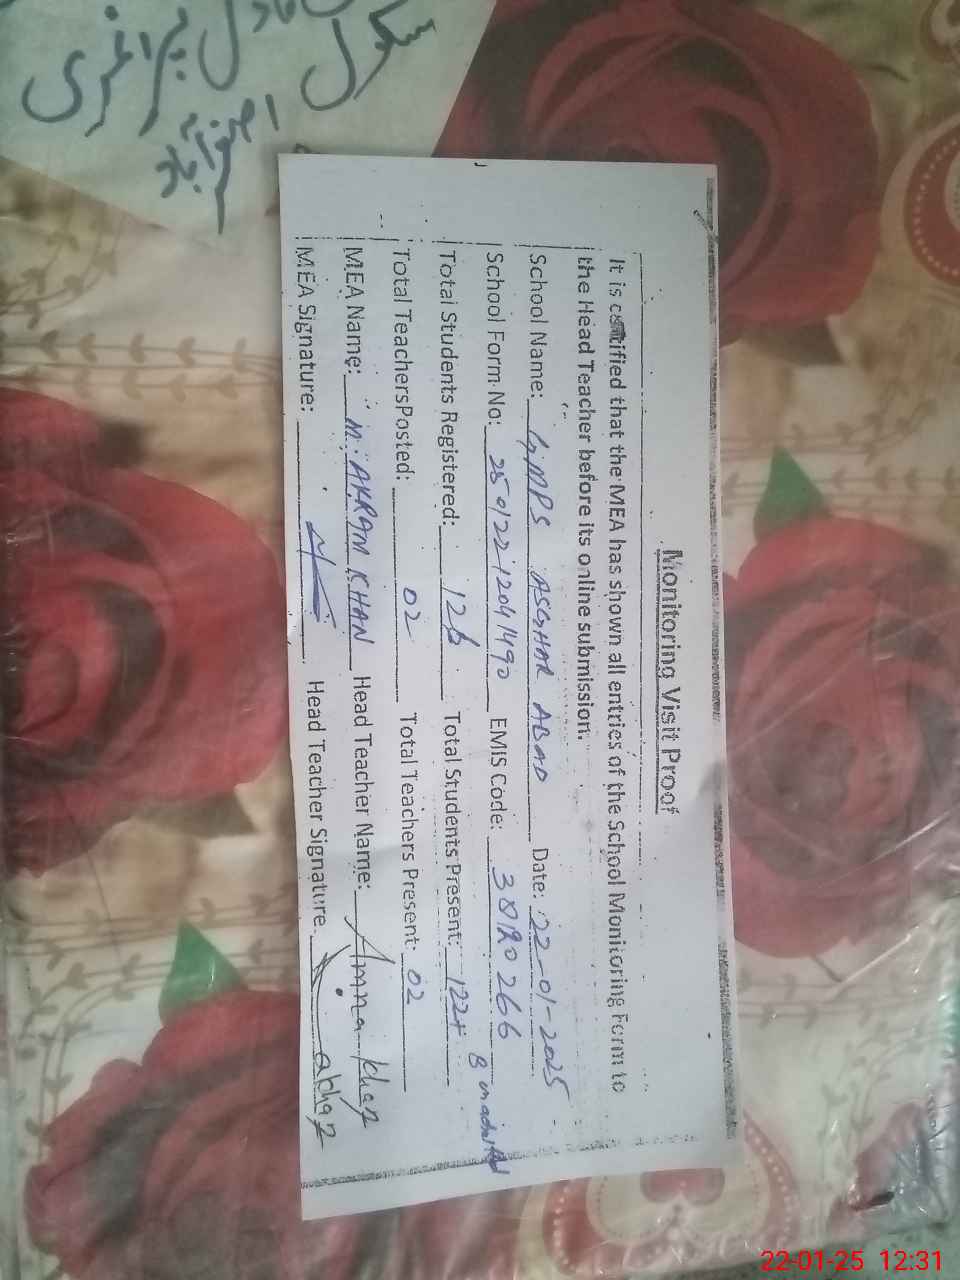 سکول
اصغر آباد
Monitoring Visit Proof
It is certified that the MEA has shown all entries of the School Monitoring Form to
the Head Teacher before its online submission.
School Name: GMPS ASGHAR ABAD Date: 22-01-2025
School Form No: 250122120411490 EMIS Code: 38120266
Total Students Registered: 126 Total Students Present: 122+
8 unadmitted
Total TeachersPosted: 02 Total Teachers Present: 02
MEA Name: M. AKRAM KHAN Head Teacher Name: Amna khan
MEA Signature: Head Teacher Signature
22-01-25 12:31